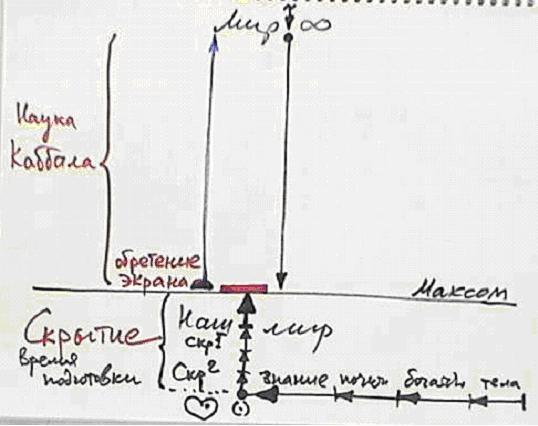 Мир ∞
Наука
Каббала
обретение
экрана
Махсом
Скрытие
Время
подготовки
Наш мир
скр 1
Скр 2
знание почести богатство тела